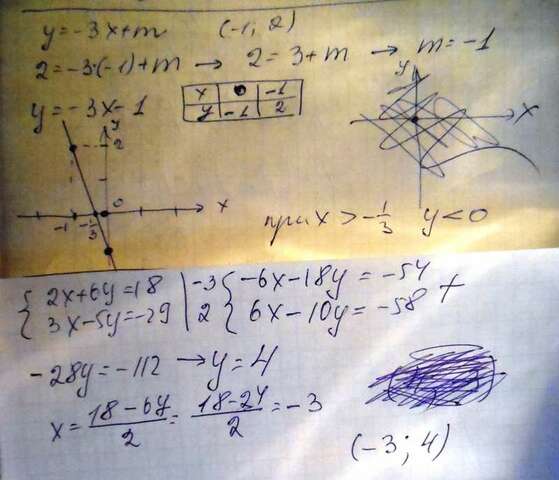 y=-3x+m (-1; 2)
2=-3·(-1)+m → 2=3+m → m=-1
y=-3x-1
x 0 -1
y -1 2
y
2
-1 -1/3 0 x
y
x
при x > -1/3 y<0
{ 2x+6y=18 | -3 { -6x-18y=-54 +
3x-5y=-29 | 2 6x-10y=-58
-28y=-112 → y=4
x= (18-6y)/2 = (18-24)/2 = -3
(-3; 4)